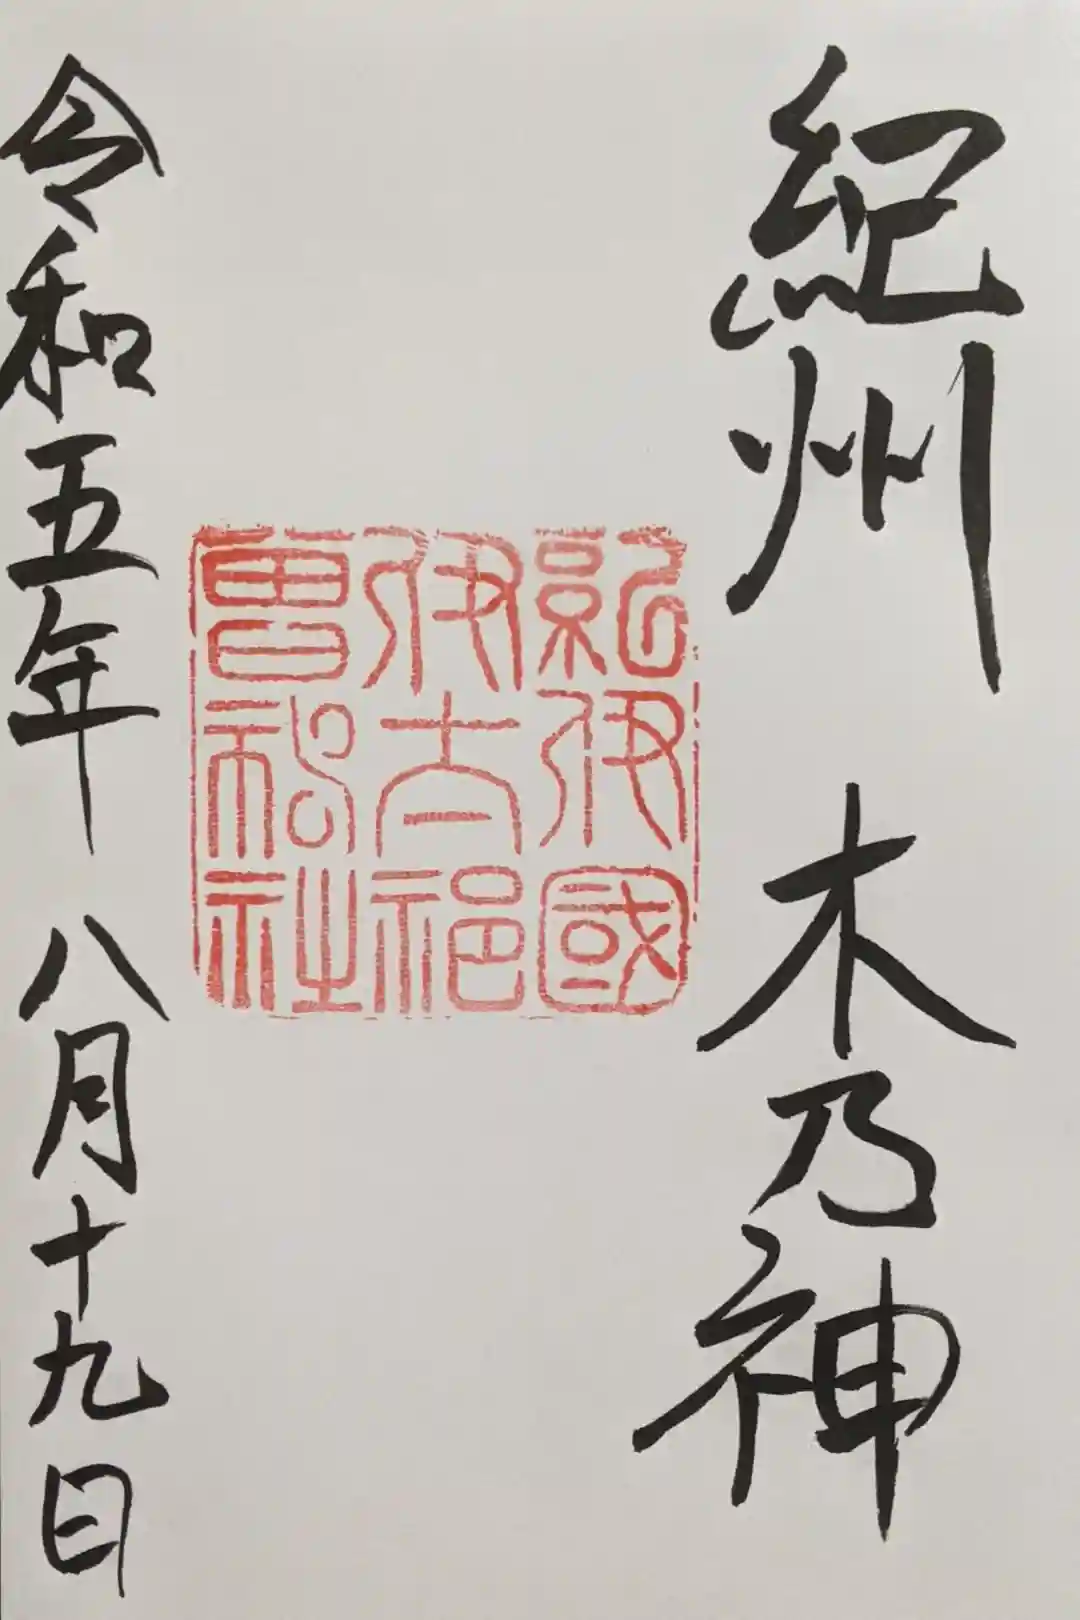 紀州 木乃神
紀伊國
伊太祁
曽神社
令和五年 八月十九日